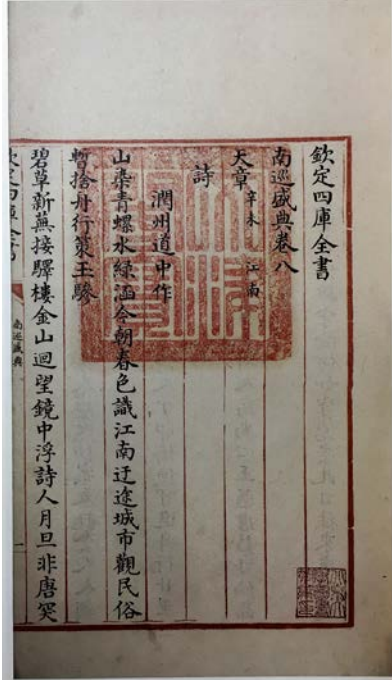 欽定四庫全書
南巡盛典卷八
天章 辛未 江南
詩
潤州道中作
山染青螺水綠涵今朝春色識江南迂途城市觀民俗
暫捨舟行策玉驂
碧草新蕪接驛樓金山迴望鏡中浮詩人月旦非唐突
欽定四庫全書
南巡盛典
一